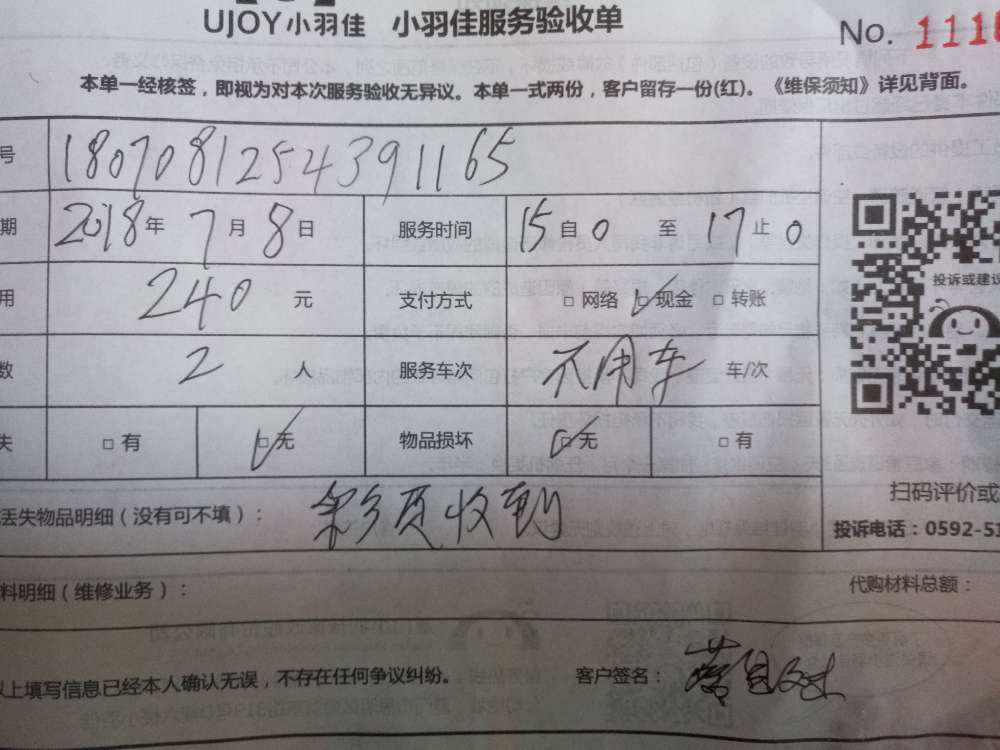 UJOY小羽佳 小羽佳服务验收单
No. 1116
本单一经核签，即视为对本次服务验收无异议。本单一式两份，客户留存一份(红)。《维保须知》详见背面。
号 1807081254391165
期 2018年 7月 8日 服务时间 15自0 至 17止0
用 240 元 支付方式 □网络 ☑现金 □转账
数 2 人 服务车次 不用车 车/次
失 □有 ☑无 物品损坏 ☑无 □有
投诉或建议
扫码评价或
投诉电话：0592-51
丢失物品明细（没有可不填）： 彩页收到
料明细（维修业务）： 代购材料总额：
以上填写信息已经本人确认无误，不存在任何争议纠纷。 客户签名：